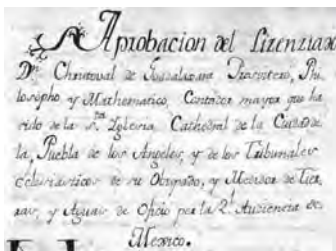 Aprobacion del Lizenziado
Dn. Christoval de Guadalaxara Presvitero, Phi
losopho y Mathematico, Contador mayor que ha
sido de la Sta. Iglesia Cathedral de la Ciudad de
la Puebla de los Angeles, y de los Tribunales
eclesiasticos de su Obispado, y Medidor de Tier
ras, y Aguas de Oficio por la Rl. Audiencia de
Mexico.